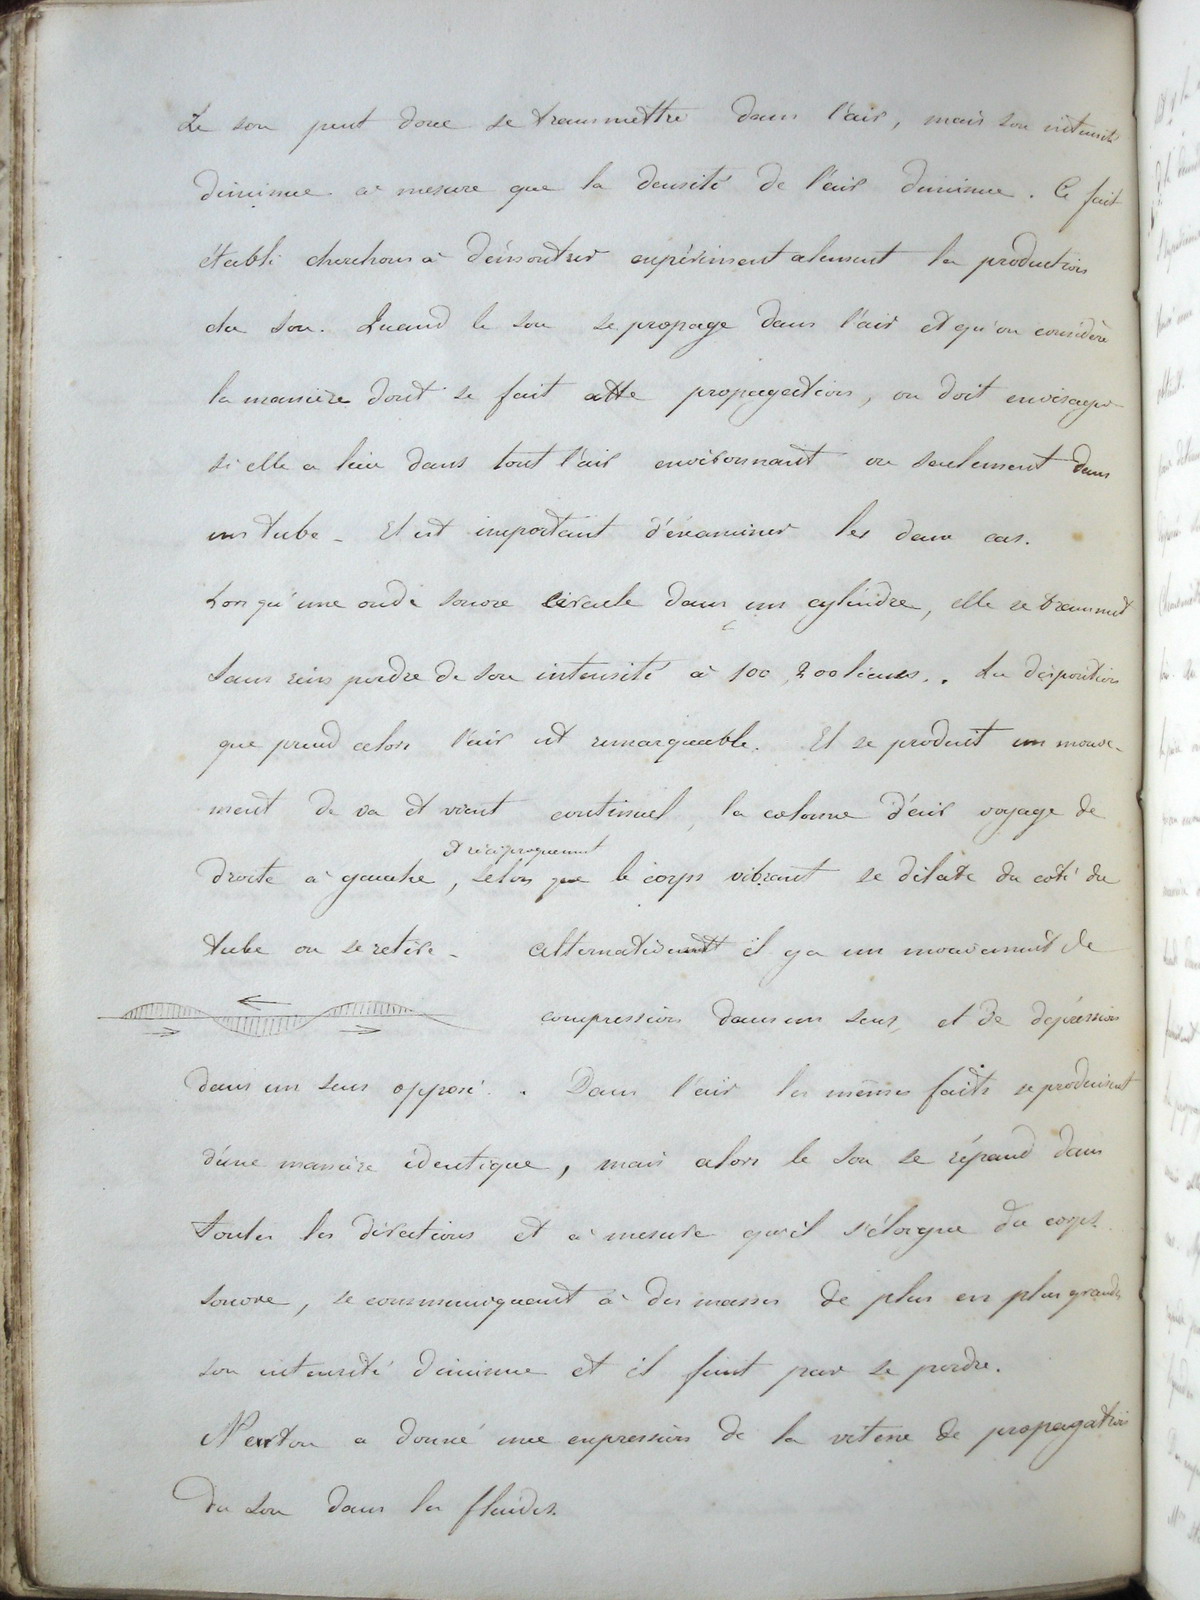 Le son peut donc se transmettre dans l'air, mais son intensité
diminue à mesure que la densité de l'air diminue. Ce fait
établi cherchons à démontrer expérimentalement la production
du son. Quand le son se propage dans l'air et qu'on considère
la manière dont se fait cette propagation, on doit envisager
si elle a lieu dans tout l'air environnant ou seulement dans
un tube. Il est important d'éxaminer les deux cas.
Lorsqu'une onde sonore circule dans un cylindre, elle se transmet
sans rien perdre de son intensité à 100, 200 lieues.. La disposition
que prend alors l'air est remarquable. Il se produit un mouve-
ment de va et vient continuel, la colonne d'air voyage de
et réciproquement
droite à gauche, selon que le corps vibrant se dilate du coté du
tube ou se retire. alternativement il y a un mouvement de
compression dans un sens, et de dépression
dans un sens opposé. Dans l'air les mêmes faits se produisent
d'une manière identique, mais alors le son se répand dans
toutes les directions et à mesure qu'il s'éloigne du corps
sonore, se communiquant à des masses de plus en plus grandes
son intensité diminue et il finit par se perdre.
Newton a donné une expression de la vitesse de propagation
du son dans les fluides.